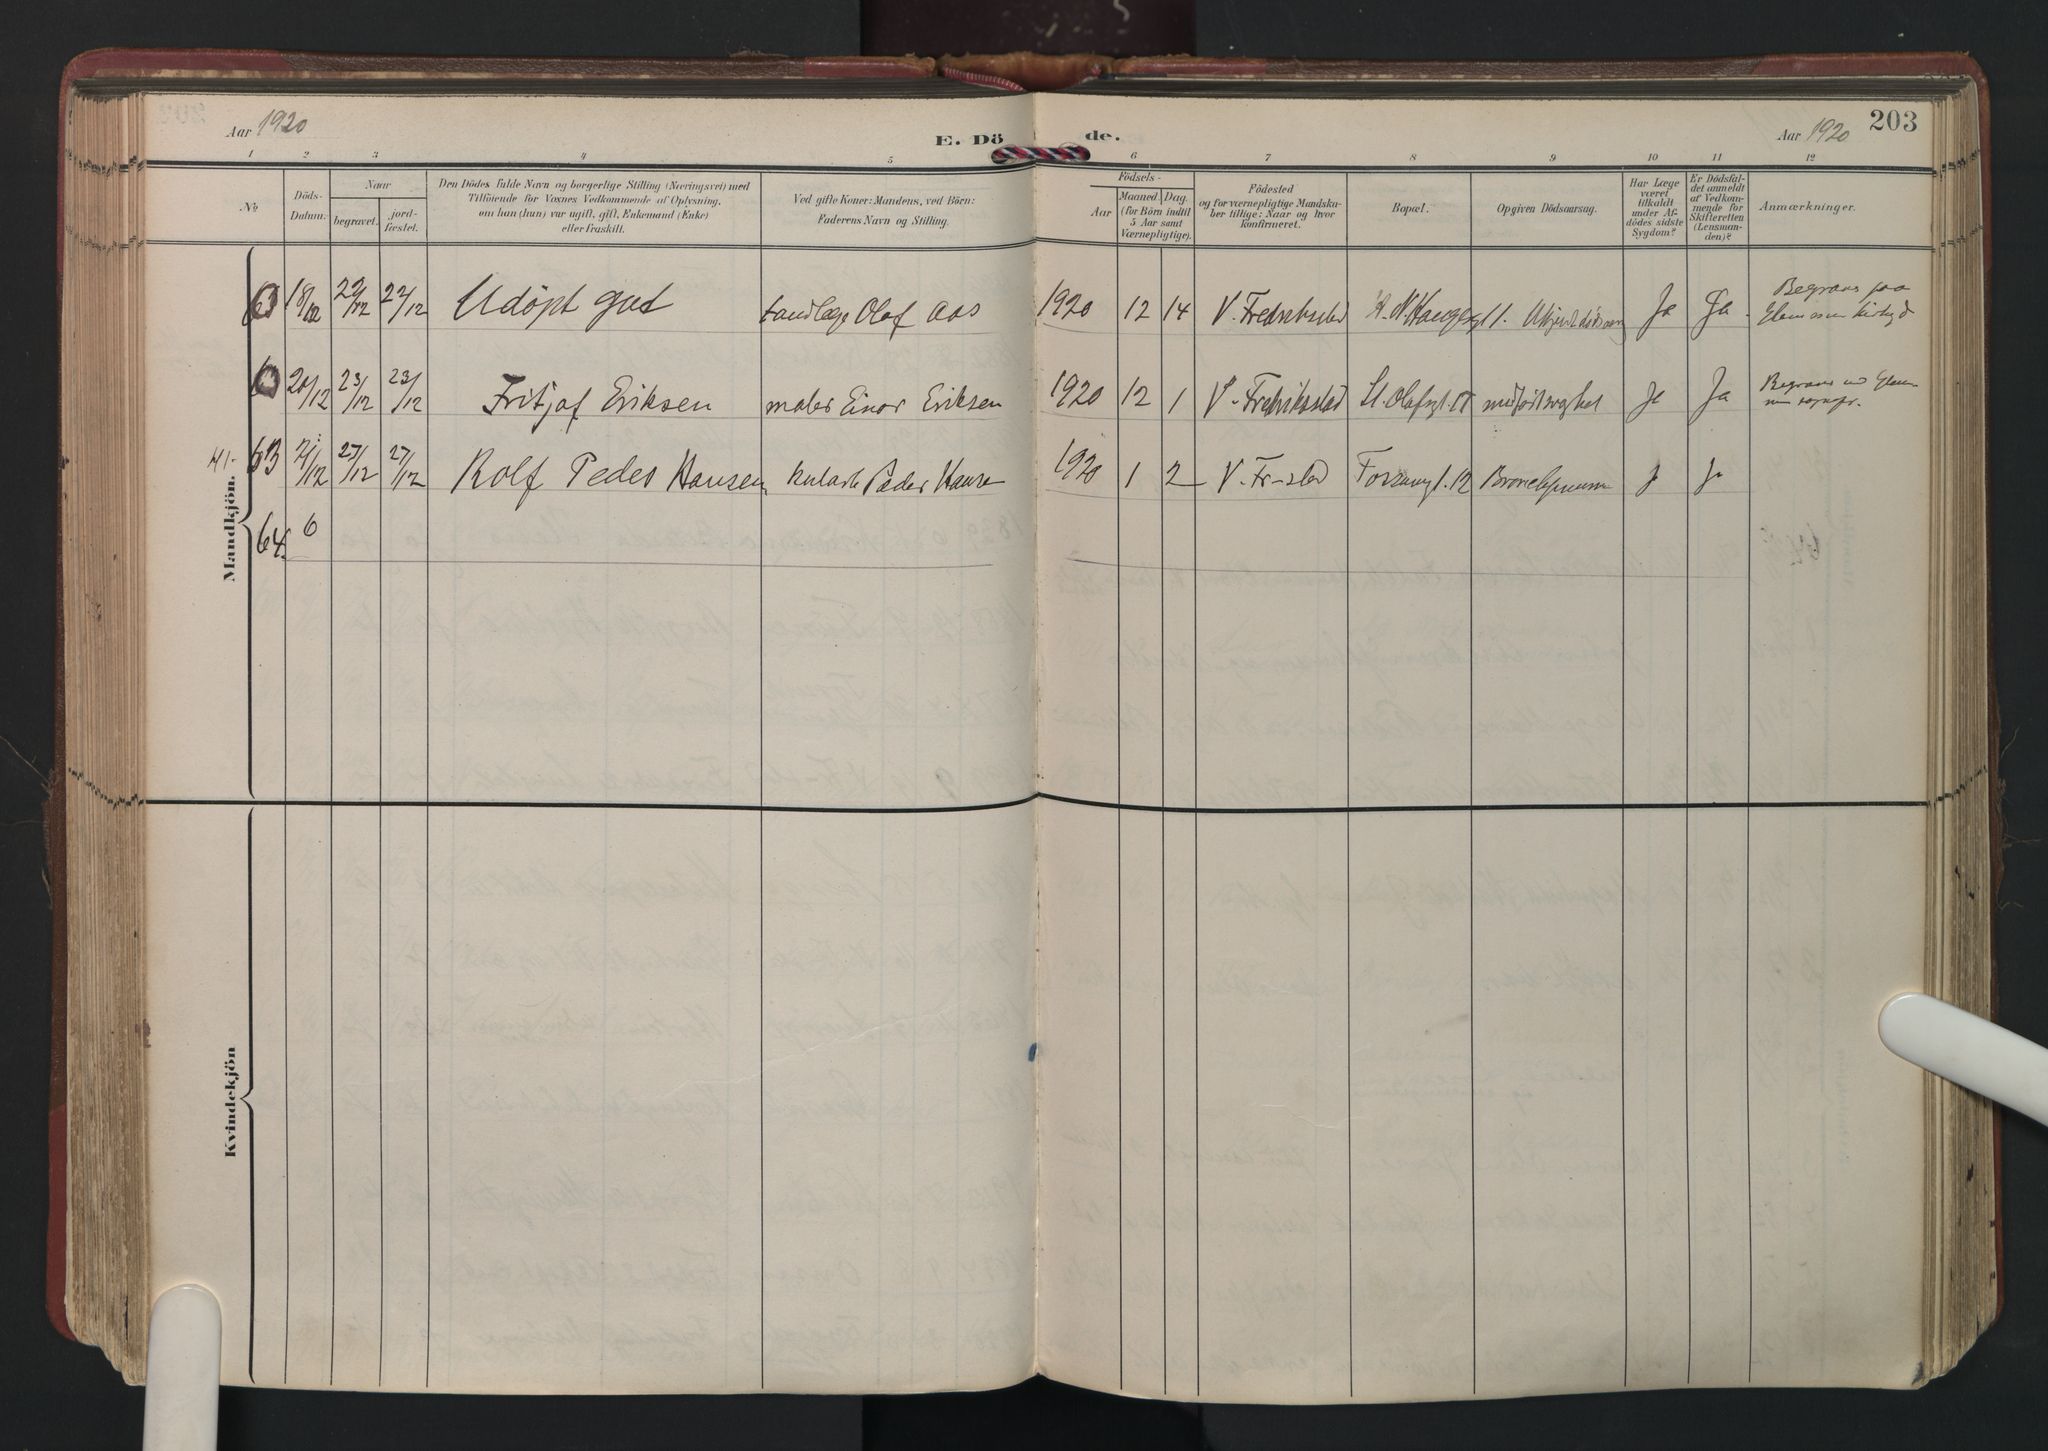 Aar 1920
E. Dö de.
Aar 1920
203
1 2 3 4 5 6 7 8 9 10 11 12
No
Döds-
Datum.
Naar
begravet.
jord-
fæstet.
Den Dödes fulde Navn og borgerlige Stilling (Næringsvei) med
Tilföiende for Voxnes Vedkommende af Oplysning,
om han (hun) var ugift, gift, Enkemand (Enke)
eller fraskilt.
Ved gifte Koner: Mandens, ved Börn:
Faderens Navn og Stilling.
Födsels-
Aar
Maaned. Dag.
(for Börn indtil
5 Aar samt
Værnepligtige).
Födested
og for værnepligtige Mandska-
ber tillige: Naar og hvor
Konfirmeret.
Bopæl.
Opgiven Dödsaarsag.
Har Læge
været
tilkaldt
under Af-
dödes sidste
Sygdom?
Er Dödsfal-
det anmeldt
af Vedkom-
mende for
Skifteretten
(Lensman-
den)?
Anmærkninger.
Mandkjön.
18/12 22/12 22/12 Udöpt gut tandlæge Olaf Aas 1920 12 14 V. Fredrikstad Ja Ja
Begravs paa
20/12 23/12 23/12 Fritjof Eriksen maler Einar Eriksen 1920 12 1 V. Fredrikstad St. Olafsgt. 17 Ja Ja
63 21/12 27/12 27/12 Rolf Peder Hansen Peder Hansen 1920 1 2 V. Fr-stad 12 J Ja
64. 6
Kvindekjön